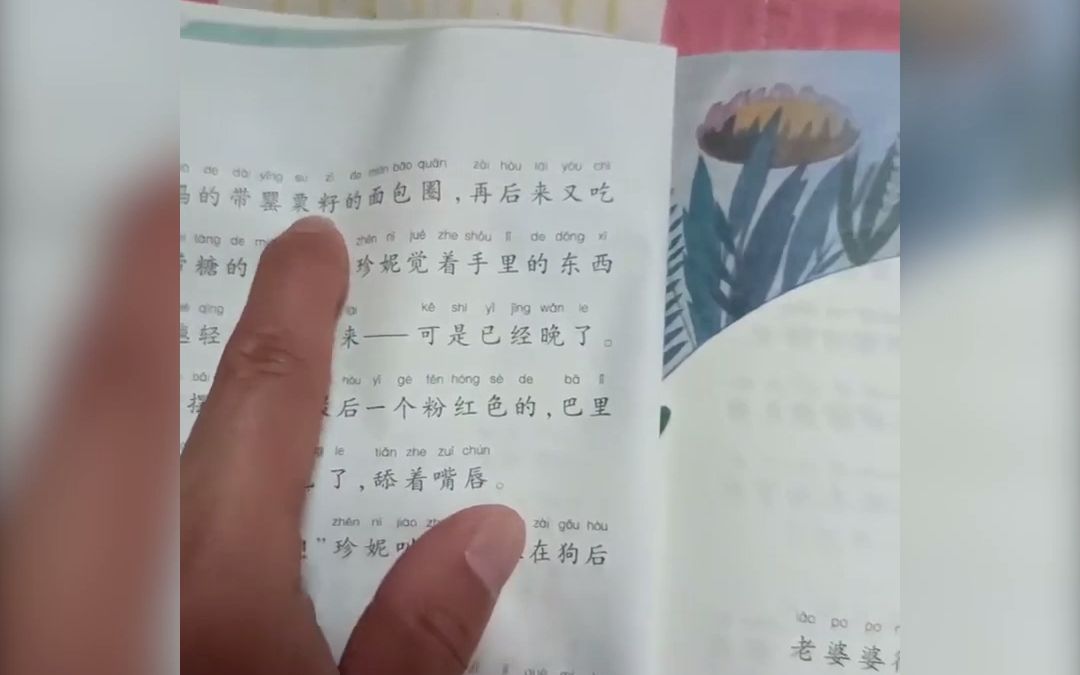 de dài yīng sù zǐ de miàn bāo quān zài hòu lái yòu chī
的带罂粟籽的面包圈，再后来又吃
táng de zhēn nī jué zhe shǒu lǐ de dōng xi
糖的 珍妮觉着手里的东西
qīng lái kě shì yǐ jīng wǎn le
轻 来——可是已经晚了。
hòu yí gè fěn hóng sè de bā lǐ
后一个粉红色的，巴里
le tiǎn zhe zuǐ chún
了，舔着嘴唇。
zhēn nī jiào zài gǒu hòu
”珍妮 在狗后
lǎo pó po
老婆婆